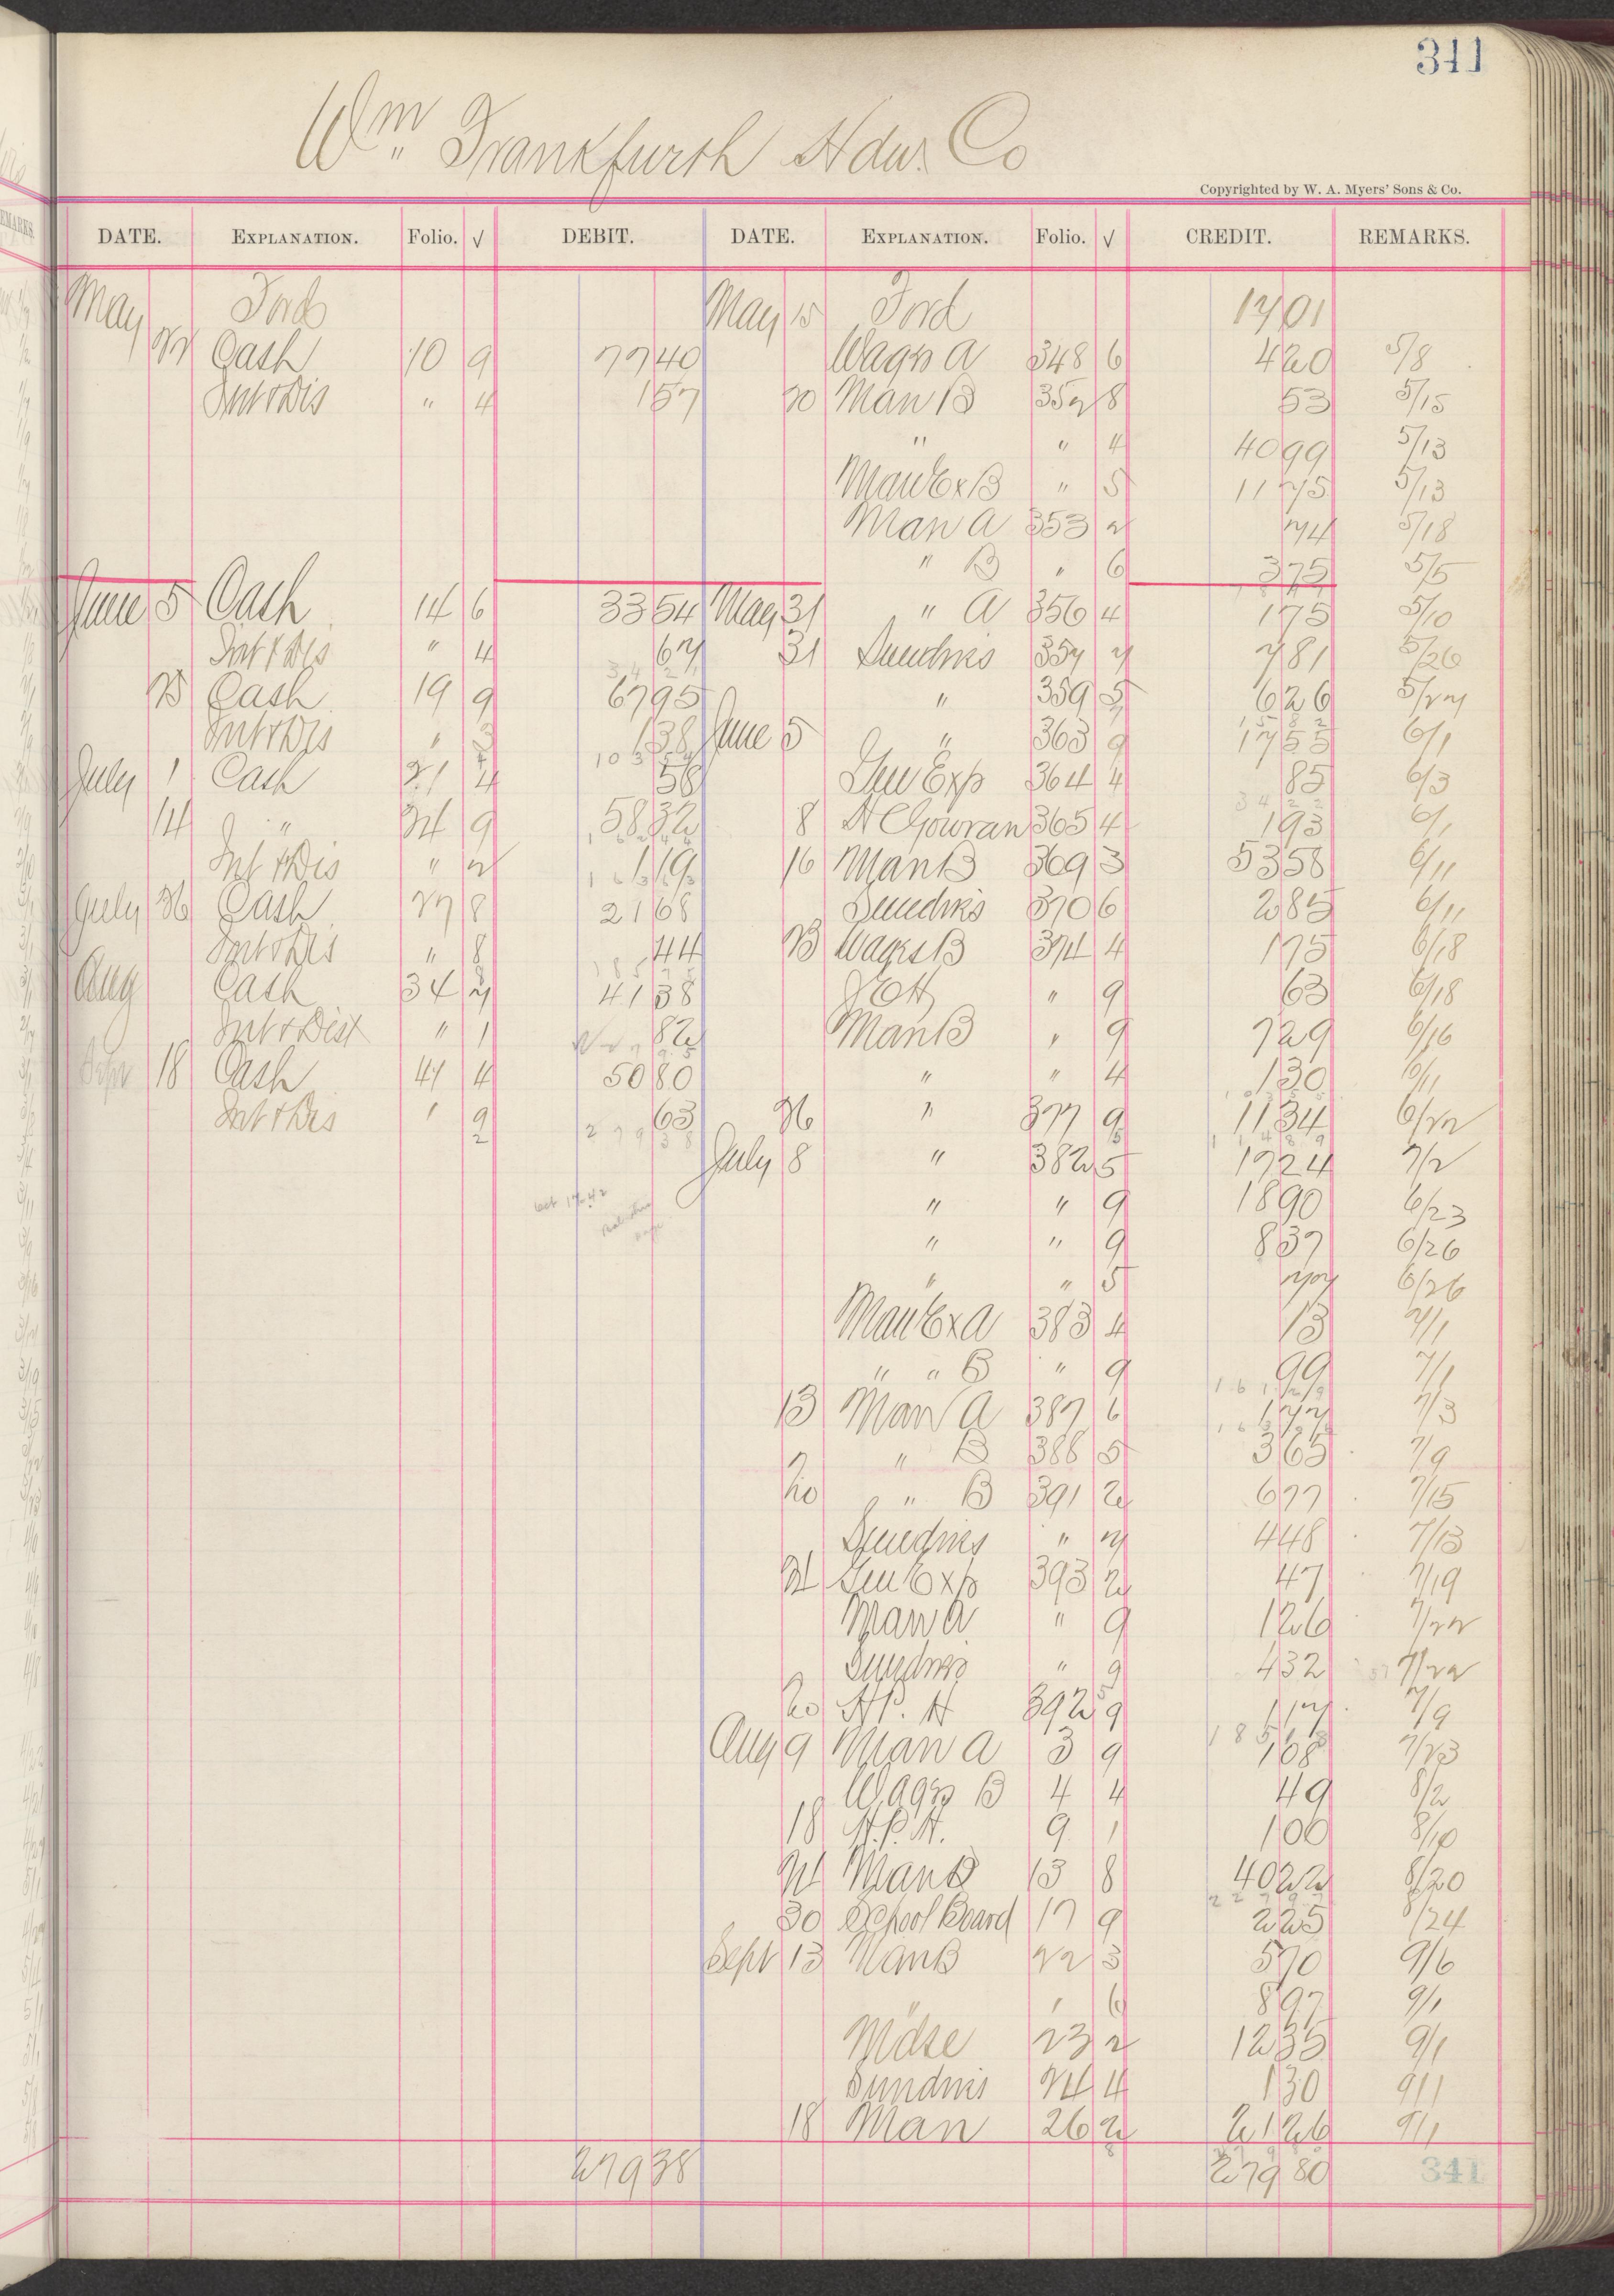 341
Wm. Frankfurth Hdw. Co
Copyrighted by W. A. Myers' Sons & Co.
DATE. EXPLANATION. Folio. √ DEBIT. DATE. EXPLANATION. Folio. √ CREDIT. REMARKS.
May Ford May 15 Ford 17 01
22 Cash 10 9 77 40 Wages A 348 6 4 20 5/8
Int & Dis " 4 1 57 20 Man B 352 8 53 5/15
" " 4 40 99 5/13
Man Ex B " 5 11 25 5/13
Man A 353 2 24 5/18
" B " 6 3 75 5/5
June 5 Cash 14 6 33 54 May 31 " A 356 4 1 75 5/10
Int & Dis " 4 67 31 Sundries 357 2 2 81 5/26
25 Cash 19 9 67 95 " 359 5 6 26 5/27
Int & Dis " 3 1 38 June 5 " 363 9 17 55 6/1
July 1 Cash 21 4 58 Gen Exp 364 4 85 6/3
14 " 24 9 58 32 8 A C Gowran 365 4 1 93 6/1
Int & Dis " 2 1 19 16 Man B 369 3 53 58 6/11
July 26 Cash 27 8 21 68 Sundries 370 6 2 85 6/11
Int & Dis " 8 44 23 Wages B 374 4 1 75 6/18
Aug Cash 34 2 41 38 " 9 63 6/18
Int & Dist " 1 82 Man B " 9 7 29 6/16
18 Cash 41 4 50 80 " " 4 1 30 6/11
Int & Dis " 9 63 26 " 377 9 11 34 6/22
July 8 " 382 5 17 24 7/2
" " 9 18 90 6/23
" " 9 8 37 6/26
" " 5 6/26
Man Ex A 383 4 13 7/1
" " B " 9 99 7/1
13 Man A 387 6 1 77 7/3
" B 388 5 3 65 7/9
20 " B 391 2 6 77 7/15
Sundries " 2 4 48 7/13
24 Gen Exp 393 2 47 7/19
Man A " 9 1 26 7/22
Sundries " 9 4 32 7/22
20 H.P. H 392 9 1 17 7/9
Aug 9 Man A 3 9 1 08 7/23
Wages B 4 4 49 8/2
18 H.P.H. 9 1 1 00 8/10
24 Man B 13 8 40 22 8/20
30 School Board 17 9 2 25 8/24
Sept 13 Man B 22 3 5 70 9/6
" " 6 8 97 9/1
Mdse 23 2 12 35 9/1
Sundries 24 4 1 30 9/1
18 Man 26 2 21 26 9/1
279 38 279 80
341